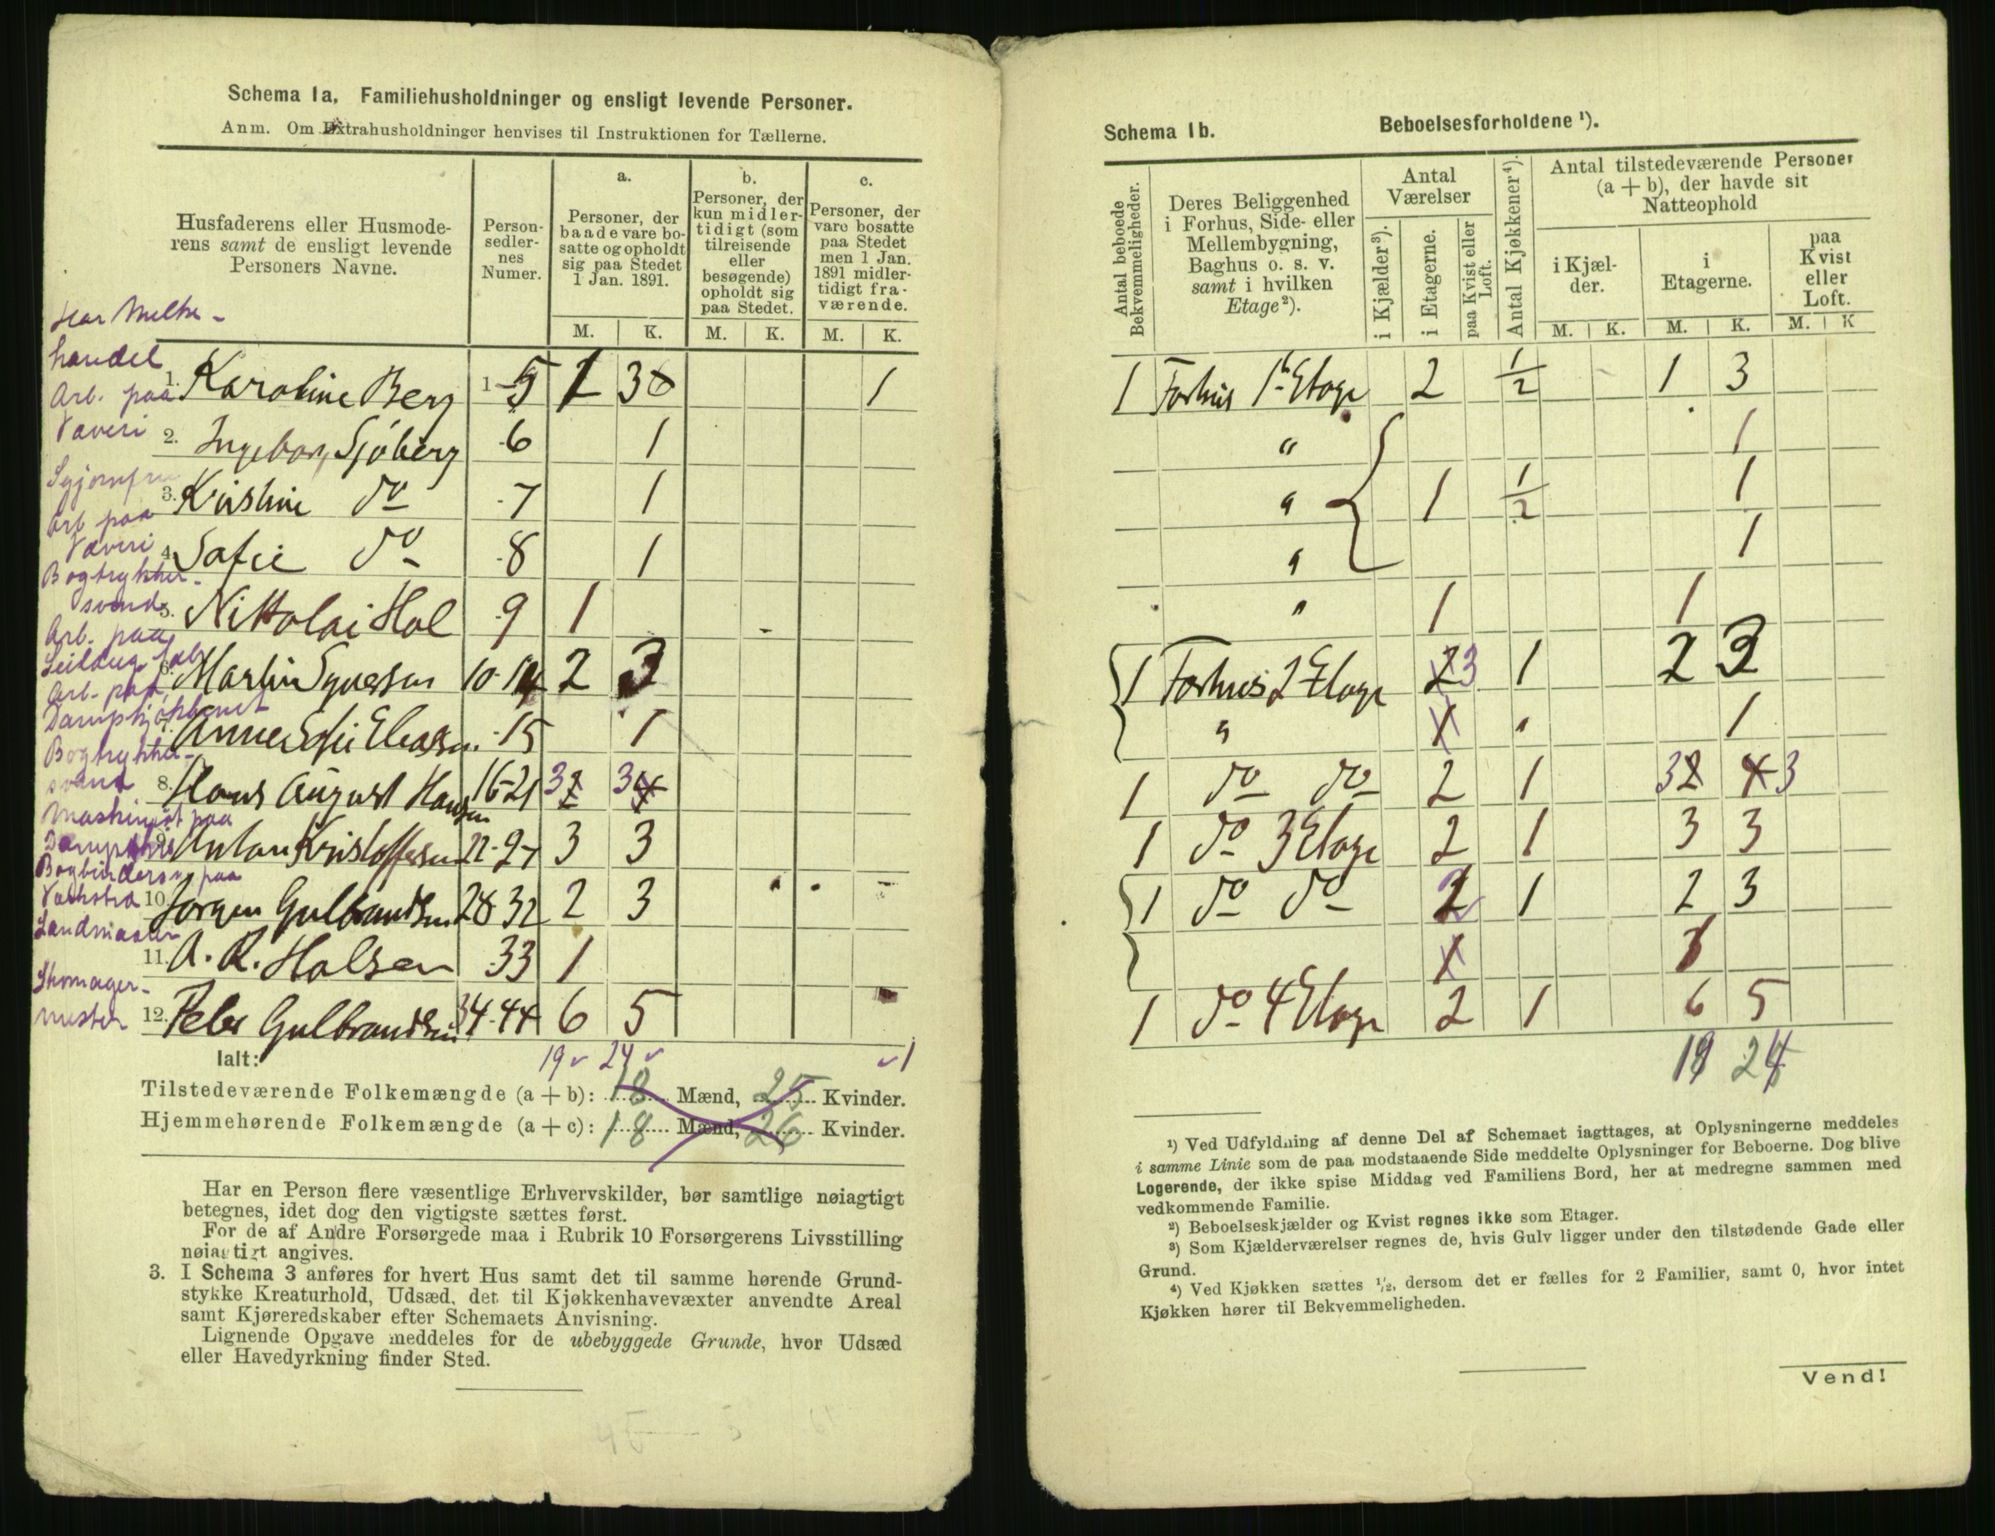 Schema 1a. Familiehusholdninger og ensligt levende Personer.
Anm. Om Extrahusholdninger henvises til Instruktionen for Tællerne.
Husfaderens eller Husmode-
rens samt de ensligt levende
Personers Navne.
Person-
sedler-
nes
Numer.
a.
Personer, der
baade vare bo-
satte og opholdt
sig paa Stedet
1 Jan. 1891.
b.
Personer, der
kun midler-
tidigt (som
tilreisende
eller
besøgende)
opholdt sig
paa Stedet.
c.
Personer, der
vare bosatte
paa Stedet
men 1 Jan.
1891 midler-
tidigt fra-
værende.
M. K. M. K. M. K.
Har Melke-
handel
1. Karoline Berg 1-5 1 3 1
Arb. paa
Væveri
2. Ingeborg Sjöberg 6 1
Syjomfru
3. Kristine do 7 1
Arb paa
Væveri
4. Sofie do 8 1
Bogtrykker-
svend
5. Nikolai Hol 9 1
Arb. paa
6. Martin 10-14 2 3
Arb. paa
7. Anne Sofie 15 1
Bogtrykker-
svend
8. Hans August Hansen 16-21 3 3
Maskinist paa
9. Anton Kristoffersen 22-27 3 3
paa
10. Jørgen Gulbrandsen 28 32 2 3
11. A. R. Holsen 33 1
Skomager-
mester
12. Peder Gulbrandsen 34-44 6 5
Ialt: 19 24 1
Tilstedeværende Folkemængde (a + b): 18 Mænd, 25 Kvinder.
Hjemmehørende Folkemængde (a + c): 18 Mænd, 26 Kvinder.
Har en Person flere væsentlige Erhvervskilder, bør samtlige nøiagtigt
betegnes, idet dog den vigtigste sættes først.
For de af Andre Forsørgede maa i Rubrik 10 Forsørgerens Livsstilling
nøiagtigt angives.
3. I Schema 3 anføres for hvert Hus samt det til samme hørende Grund-
stykke Kreaturhold, Udsæd, det til Kjøkkenhavevæxter anvendte Areal
samt Kjøreredskaber efter Schemaets Anvisning.
Lignende Opgave meddeles for de ubebyggede Grunde, hvor Udsæd
eller Havedyrkning finder Sted.
Schema 1b. Beboelsesforholdene ¹).
Antal beboede
Bekvemmeligheder.
Deres Beliggenhed
i Forhus, Side- eller
Mellembygning,
Baghus o. s. v.
samt i hvilken
Etage²).
Antal
Værelser
i Kjælder³).
i Etagerne.
paa Kvist eller
Loft.
Antal Kjøkkener⁴).
Antal tilstedeværende Personer
(a + b), der havde sit
Natteophold
i Kjæl-
der.
i
Etagerne.
paa
Kvist
eller
Loft.
M. K. M. K. M. K
1 Forhus 1 Etage 2 1/2 1 3
" 1
" 1 1/2 1
" 1
" 1 1
1 Forhus 2 Etage 2 3 1 2 3
" 1 " 1
1 do do 2 1 3 2 4 3
1 do 3 Etage 2 1 3 3
1 do do 2 1 2 3
1 1
1 do 4 Etage 2 1 6 5
19 24
¹) Ved Udfyldning af denne Del af Schemaet iagttages, at Oplysningerne meddeles
i samme Linie som de paa modstaaende Side meddelte Oplysninger for Beboerne. Dog blive
Logerende, der ikke spise Middag ved Familiens Bord, her at medregne sammen med
vedkommende Familie.
²) Beboelseskjælder og Kvist regnes ikke som Etager.
³) Som Kjælderværelser regnes de, hvis Gulv ligger under den tilstødende Gade eller
Grund.
⁴) Ved Kjøkken sættes ½, dersom det er fælles for 2 Familier, samt 0, hvor intet
Kjøkken hører til Bekvemmeligheden.
Vend!